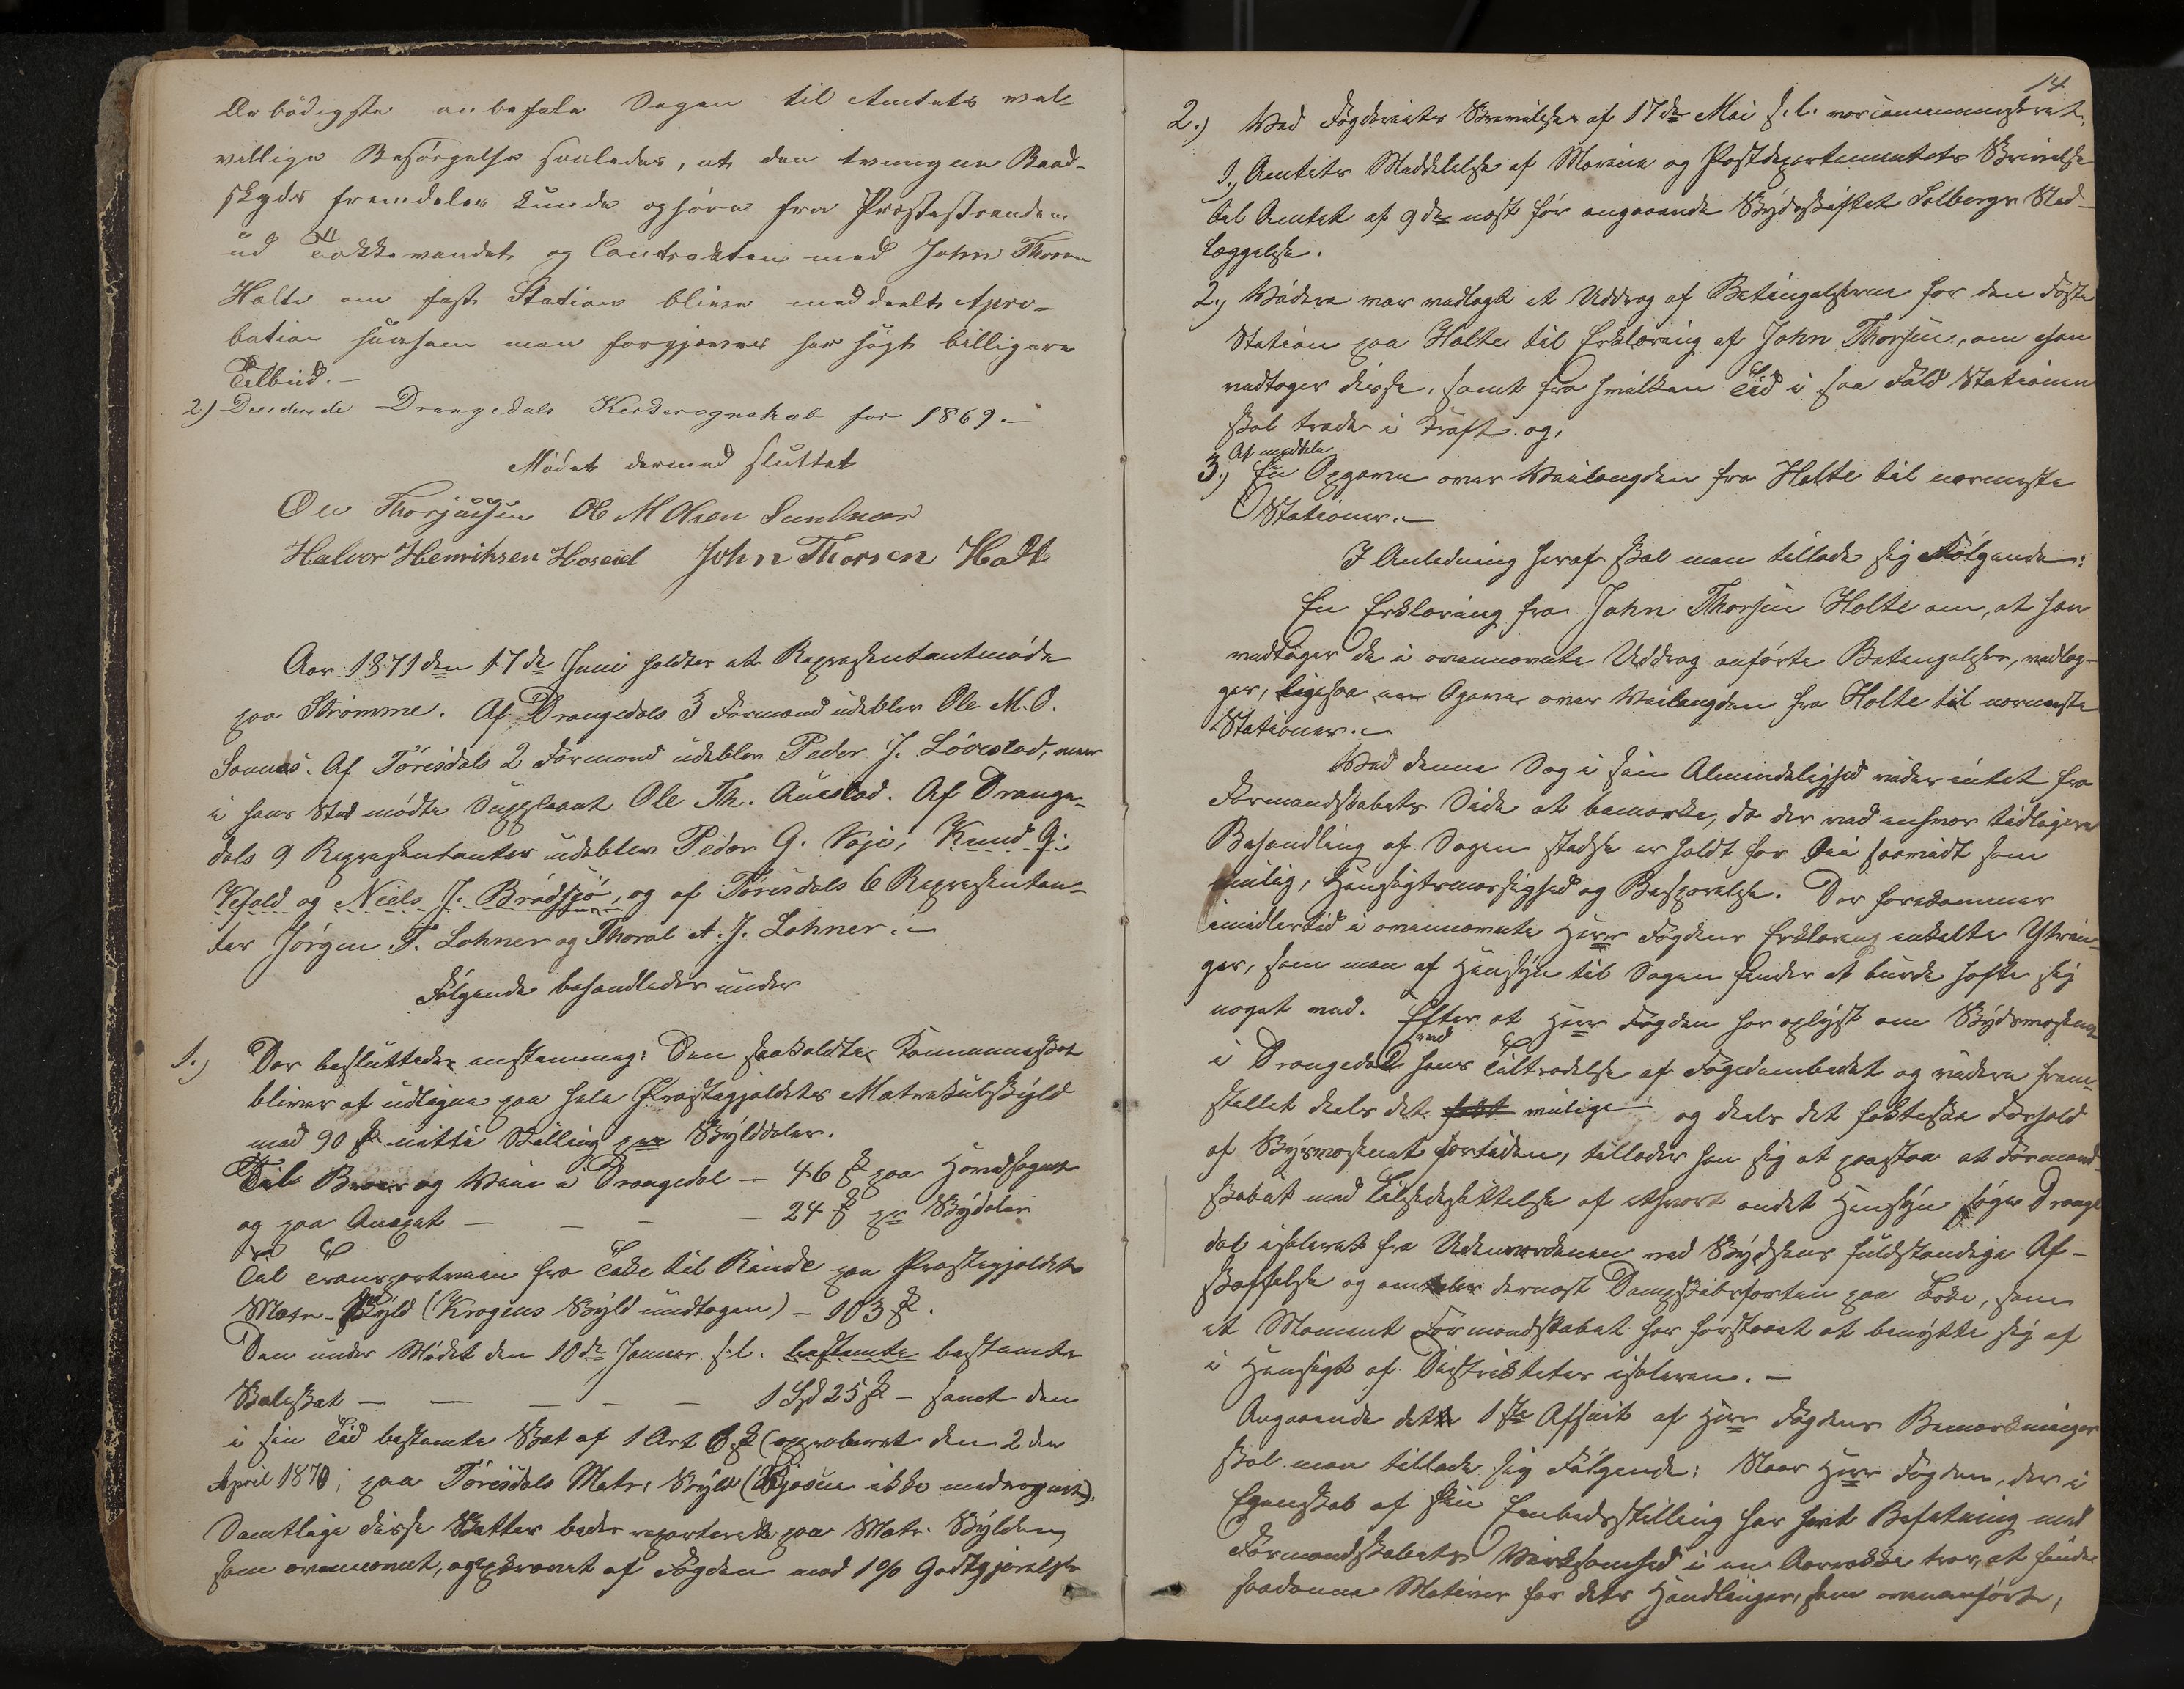 Ærbödigste anbefale Sagen til Amtets vel-
villige Besørgelse saaledes, at den tvungne Baad-
skyds fremdeles kunde ophöre fra Præstestranden
ud Tokkevandet og Contrakten med John Thorsen
Holte om fast Station blive meddeelt Apro-
bation saasom man forgjæves har søgt billigere
Tilbud.-
2) Deciderede Drangedals Kirkeregnskab for 1869.-
Mödet dermed sluttet
Ole Thorjussen Ol M Olsen Sandnæs
Halvor Henriksen Hoseid John Thorsen Holt
Aar 1871 den 17de Juni holdtes et Repræsentantmöde
paa Strömme. Af Drangedals 3 Formænd udeblev Ole M. O.
Sannes. Af Törisdals 2 Formænd udeblev Peder J. Lövestad, men
i hans Sted mödte Suppleant Ole Th. Auestad. Af Drange-
dals 9 Repræsentanter udeblev Peder G. Voje, Knud G.
Vefald og Niels J. Brödsjö, og af Törisdals 6 Repræsentan-
ter Jörgen T. Lohner og Thoral A. J. Lohner.-
Fölgende behandledes under
1.) Der besluttedes enstemmig: Den saakaldte Kommuneskat
bliver at udligne paa hele Præstegjældets Matrikulskyld
med 90 ß nitti Skilling per Skylddaler.
Til Broer og Veie i Drangedal — 46 ß paa Hovedsognet
og paa Anexet — — — — 24 ß pr Skyldaler
Til Transportveien fra Toke til Rinde paa Præstegjældets
Matr. Skyld (Kragerös Skyld undtagen) — 103 ß.
Den under Mödet den 10de Januar f.l. bestemte bestemte
Skoleskat — — — — — 1 Spd 25 ß — samt den
i sin Tid bestemte Skat af 1 Ort 6 ß (approberet den 2den
April 1870, paa Törisdals Matr. Skyld ( ikke medregnet).
Samtlige disse Skatter bedes reparterede paa Matr. Skylden,
som ovennævnt, og opkrævet af Fogden med 1% Godtgjörelse
14.
2.) Ved Fogderiets Skrivelse af 17de Mai f.l. var
1., Amtets Meddelelse af Marine og Postdepartementets Skrivelse
til Amtet af 9de næst för angaaende Skydsskiftet Solbergs Ned-
læggelse.
2., Videre var vedlagt et Uddrag af Betingelserne for den faste
Station paa Holte til Erklæring af John Thorsen, om han
vedtager disse, samt fra hvilken Tid i saa Fald Stationen
skal træde i Kraft. og,
At meddele
3.) En Opgave over Veilængden fra Holte til nærmeste
Stationer.—
I Anledning heraf skal man tillade sig Fölgende:
En Erklæring fra John Thorsen Holte om, at han
vedtager de i ovennævnte Uddrag anförte Betingelser, vedlæg-
ges, ligesaa en Opgave over Veilængden fra Holte til nærmeste
Stationer.—
Ved denne Sag i sin Almindelighed vides intet fra
Formandskabets Side at bemærke, da der ved enhver tidligere
Behandling af Sagen stedse er holdt for Öie saavidt som
mulig, Hensigtsmæssighed og Besparelse. Der forekommer
imidlertid i ovennævnte Herr Fogdens Erklæring enkelte Ytrin-
ger, som man af Hensyn til Sagen finder at burde hefte sig
noget ved. Efter at Herr Fogden har oplyst om Skydsvæsenet
i Drangedal ved hans Tiltrædelse af Fogedembedet og videre frem-
stillet deels det mulige og deels det faktiske Forhold
af Skydsvæsenet fortiden, tillader han sig at paastaa at Formand-
skabet med Tilsidesættelse af ethvert andet Hensyn söger Drange-
dal isoleret fra Udenverdenen ved Skydsens fuldstændige Af-
skaffelse og omtaler dernæst Dampskibsfarten paa Toke, som
et Moment Formandskabet har forstaaet at benytte sig af
i Hensigt af Distriktets isoleren.—
Angaaende dette 1ste Afsnit af Herr Fogdens Bemærkninger
skal man tillade sig Fölgende: Naar Herr Fogden, der i
Egenskab af sin Embedsstilling har havt Befatning med
Formandskabets Virksomhed i en Aarrække tror, at finde
saadanne Motiver for dets Handlinger, som ovenanförte,